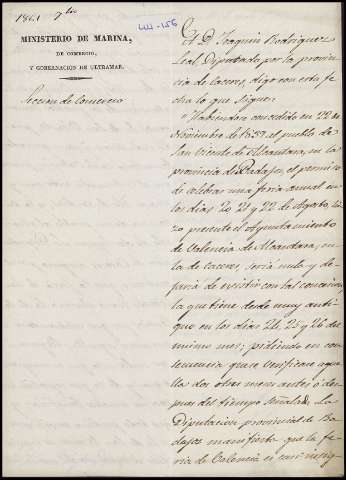 44-156
MINISTERIO DE MARINA,
DE COMERCIO,
Y GOBERNACION DE ULTRAMAR.
Seccion de Comercio
A D. Joaquin Rodriguez
Leal Diputado por la provin
cia de Caceres, digo con esta fe
cha lo que sigue.
"Habiendose concedido en 22 de
Noviembre de 1837 al pueblo de
San Vicente de Alcantara, en la
provincia de Badajoz, el permiso
de celebrar una feria anual en
los dias 20 21 y 22 de Agosto, hi-
zo presente el Ayuntamiento
de Valencia de Alcantara, en
la de Caceres, seria nula y de-
jaria de existir con tal concesion
la que tiene desde muy anti-
guo en los dias 24, 25 y 26 del
mismo mes; pidiendo en con-
secuencia que se verificase aque-
lla dos otros meses antes ó des-
pues del tiempo señalado. La
Diputacion provincial de Ba-
dajoz manifiesta que la fe-
ria de Valencia es muy insig-